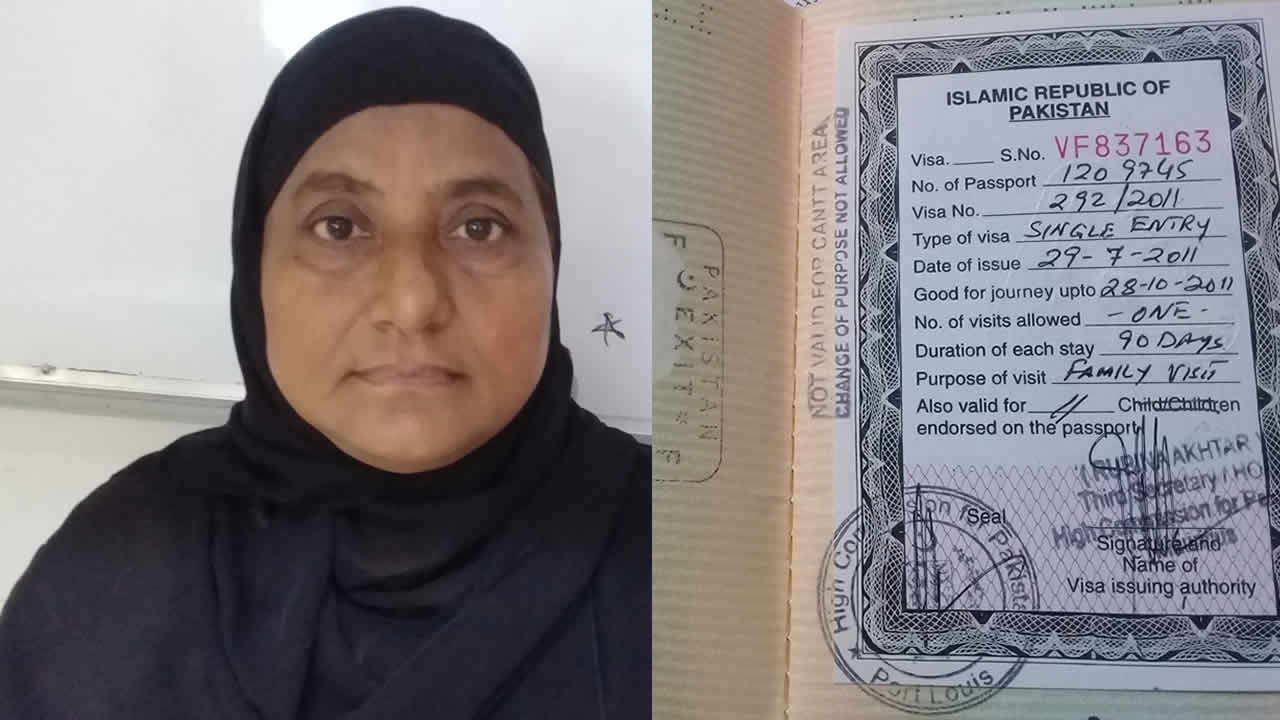 ISLAMIC REPUBLIC OF
PAKISTAN
Visa. S.No. VF837163
No. of Passport 1209745
Visa No. 292/2011
Type of visa SINGLE ENTRY
Date of issue 29-7-2011
Good for journey upto 28-10-2011
No. of visits allowed - ONE -
Duration of each stay 90 DAYS
Purpose of visit FAMILY VISIT
Also valid for Child/Children
endorsed on the passport
RUBINA AKHTAR
Third Secretary / HO
High Commission for Pa
Seal
Signature and
Name of
Visa issuing authority
High Co sion for Pakista
Port Louis
NOT VALID FOR CANTT AREA
CHANGE OF PURPOSE NOT ALLOWED
PAKISTAN
EXIT